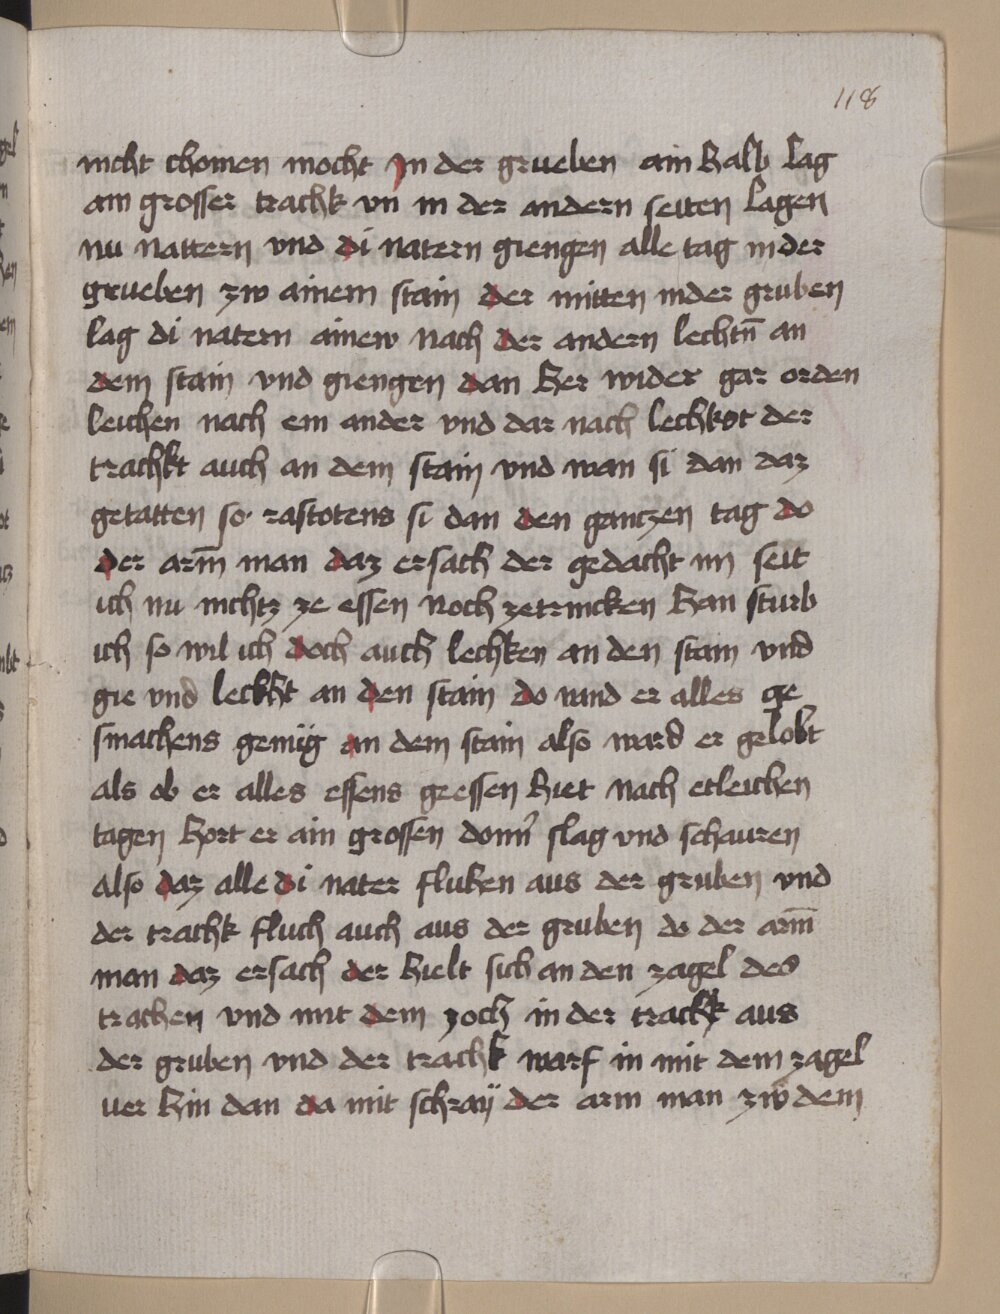 118
nicht chomen mocht Jn der grueben ain halb lag
ain grosser trachk vn̄ in der andern seiten lagen
nu nattern vnd di natern giengen alle tag in der
grueben zw ainem stain der mitten in der gruben
lag di natern ainew nach der andern lechtn̄ an
dem stain vnd giengen dan her wider gar orden
leichen nach ein ander vnd dar nach lechkot der
trachkt auch an dem stain vnd wan si dan daz
getatten so rastotens si dan den ganczen tag do
der arm̄ man daz ersach der gedacht im seit
ich nu nichtz ze essen noch zetrincken han sturb
ich so wil ich doch auch lechken an den stain vnd
gie vnd leckht an den stain do uand er alles ge
smachens genüg an dem stain also ward er gelobt
als ob er alles essens gessen hiet nach etleichen
tagen hort er ain grossen donn̄ slag vnd schauren
also daz alle di nater fluhen aus der gruben vnd
der trachk fluch auch aus der gruben do der arm̄
man daz ersach der hielt sich an den zagel des
trachen vnd mit dem zoch in der trachk aus
der gruben vnd der trachk warf in mit dem zagel
uer hin dan da mit schraÿ der arm man zẅ dem